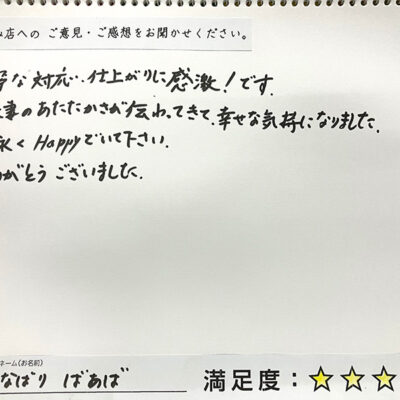 店への ご意見・ご感想をお聞かせください。
な対応、仕上がりに感激！です。
事のあたたかさが伝わってきて、幸せな気持になりました。
永くHappyでいて下さい。
がとうございました。
ネーム(お名前)
なばり ばあば
満足度：☆☆☆